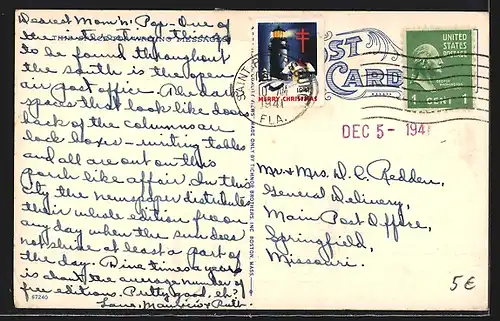 Dearest Mom 'n' Pop - One of
the interesting things
to be found throughout
the south is the open
air post office. The dark
spaces that look like doors
back of the columns are
lock boxes - writing tables
and all are out on this
porch like affair. In this
city the newspaper distributes
their whole edition free on
any day when the sun does
not shine at least a part of
the day. Nine times a year
is about the average number of
free editions. Pretty good, eh?
Love, Maurice & Ruth
67240
MERRY CHRISTMAS
1941
FLA.
POST CARD
UNITED STATES
POSTAGE
1 CENT 1
DEC 5 - 194
Mr & Mrs. D. C. Redden,
General Delivery,
Main Post Office,
Springfield,
Missouri.
5€